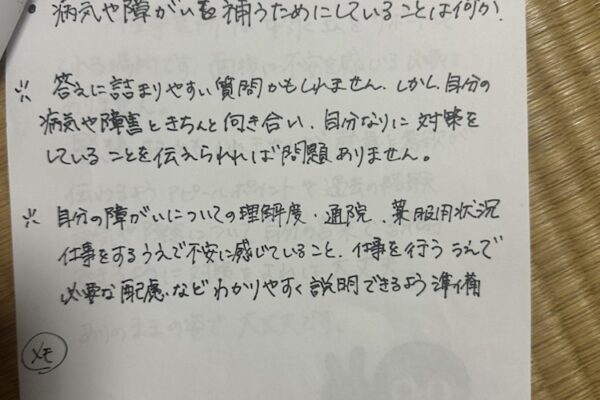 ・病気や障がいを補うためにしていることは何か.
※ 答えに詰まりやすい質問かもしれません. しかし、自分の
病気や障害ときちんと向き合い、自分なりに対策を
していることを伝えられれば問題ありません。
※ 自分の障がいについての理解度・通院、薬服用状況
仕事をするうえで不安に感じていること、仕事を行ううえで
必要な配慮などわかりやすく説明できるよう準備
メモ